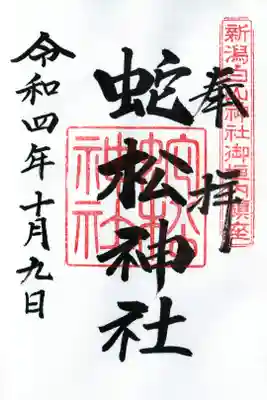 新潟白山神社御垣内鎮座
奉拝
蛇松神社
蛇松神社
令和四年十月九日